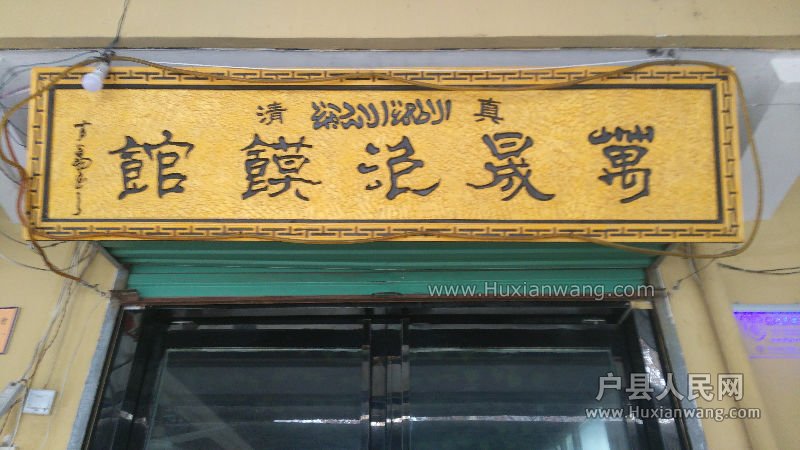 真 清
萬晟泡饃館
www.Huxianwang.com
户县人民网
www.Huxianwang.com